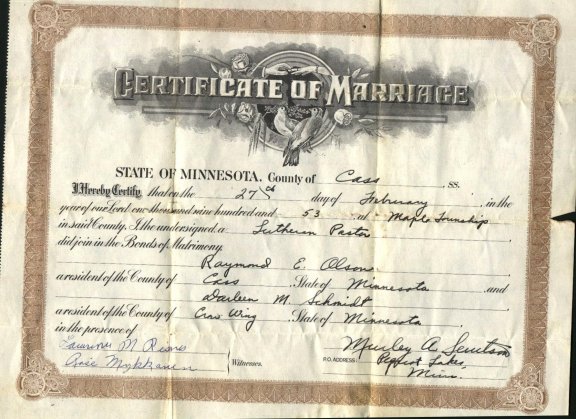 CERTIFICATE OF MARRIAGE
STATE OF MINNESOTA. County of Cass SS.
I Hereby Certify, that on the 27th day of February, in the
year of our Lord one thousand nine hundred and 53 at Maple Township
in said County. I the undersigned a Lutheran Pastor
did join in the Bonds of Matrimony.
Raymond E. Olson
a resident of the County of Cass, State of Minnesota, and
Darleen M. Schmidt
a resident of the County of Crow Wing, State of Minnesota,
in the presence of
Witnesses.
P.O. ADDRESS Lake,
Minn.